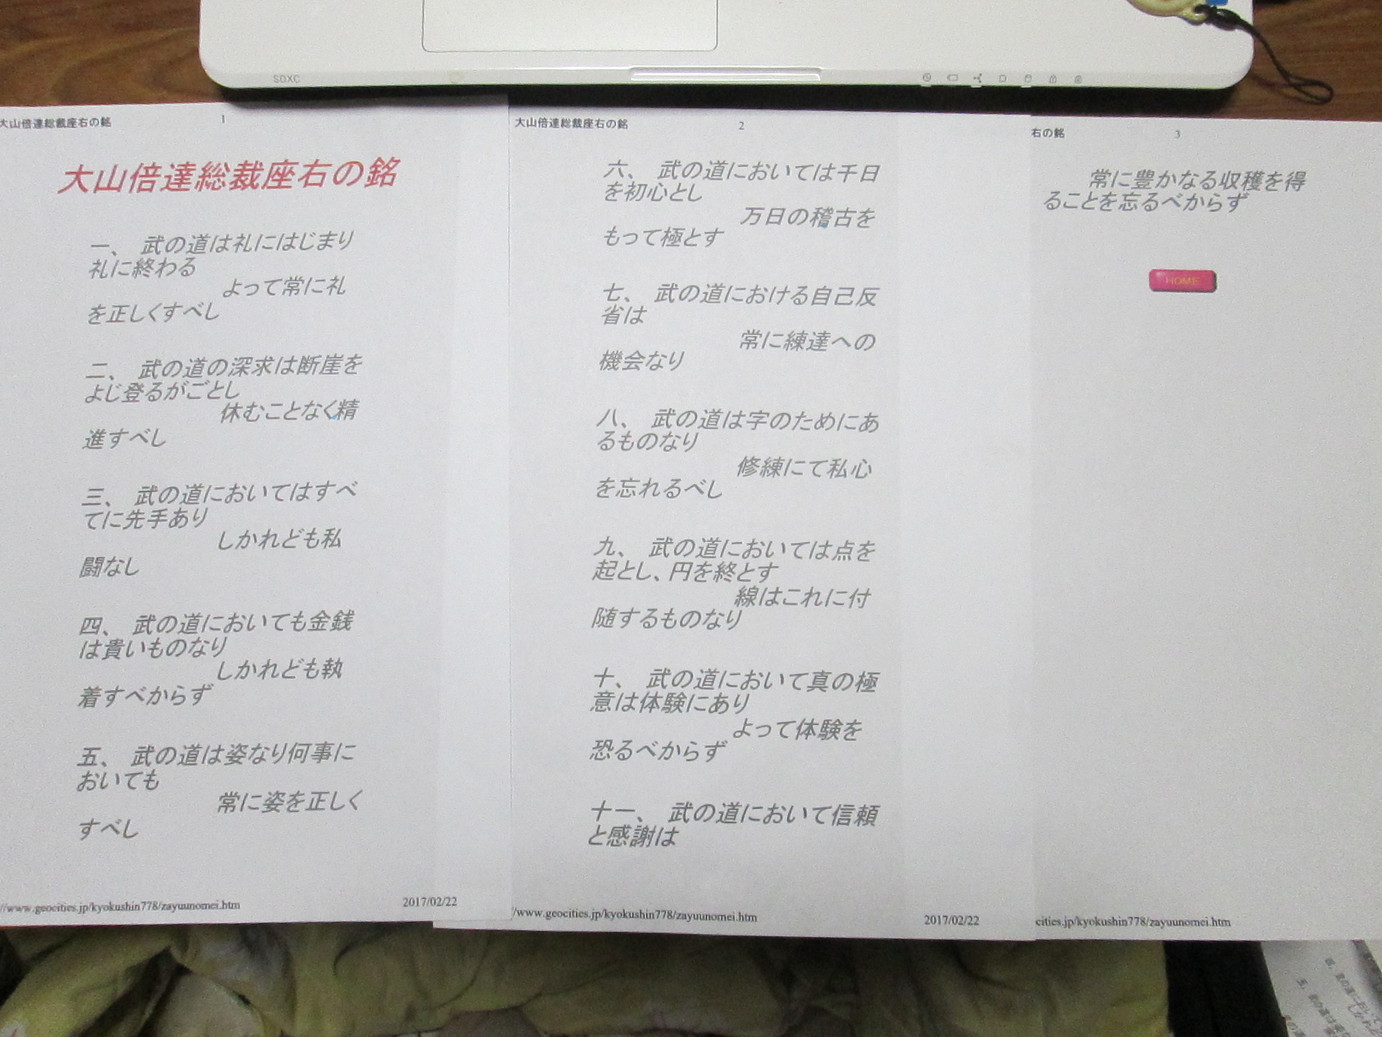 SDXC
大山倍達総裁座右の銘
1
大山倍達総裁座右の銘
一、 武の道は礼にはじまり
礼に終わる
よって常に礼
を正しくすべし
二、 武の道の深求は断崖を
よじ登るがごとし
休むことなく精
進すべし
三、 武の道においてはすべ
てに先手あり
しかれども私
闘なし
四、 武の道においても金銭
は貴いものなり
しかれども執
着すべからず
五、 武の道は姿なり何事に
おいても
常に姿を正しく
すべし
//www.geocities.jp/kyokushin778/zayuunomei.htm
2017/02/22
大山倍達総裁座右の銘
2
六、 武の道においては千日
を初心とし
万日の稽古を
もって極とす
七、 武の道における自己反
省は
常に練達への
機会なり
八、 武の道は字のためにあ
るものなり
修練にて私心
を忘れるべし
九、 武の道においては点を
起とし、円を終とす
線はこれに付
随するものなり
十、 武の道において真の極
意は体験にあり
よって体験を
恐るべからず
十一、 武の道において信頼
と感謝は
/www.geocities.jp/kyokushin778/zayuunomei.htm
2017/02/22
右の銘
3
常に豊かなる収穫を得
ることを忘るべからず
HOME
cities.jp/kyokushin778/zayuunomei.htm